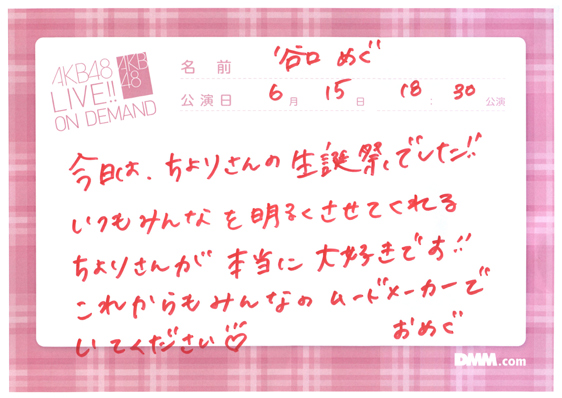 AKB48
LIVE!!
ON DEMAND
AKB
48
名前 谷口 めぐ
公演日 6月 15日 18:30 公演
今日は、ちょりさんの生誕祭でした!!
いつもみんなを明るくさせてくれる
ちょりさんが本当に大好きです!!
これからもみんなのムードメーカーで
いてください♡
おめぐ
DMM.com